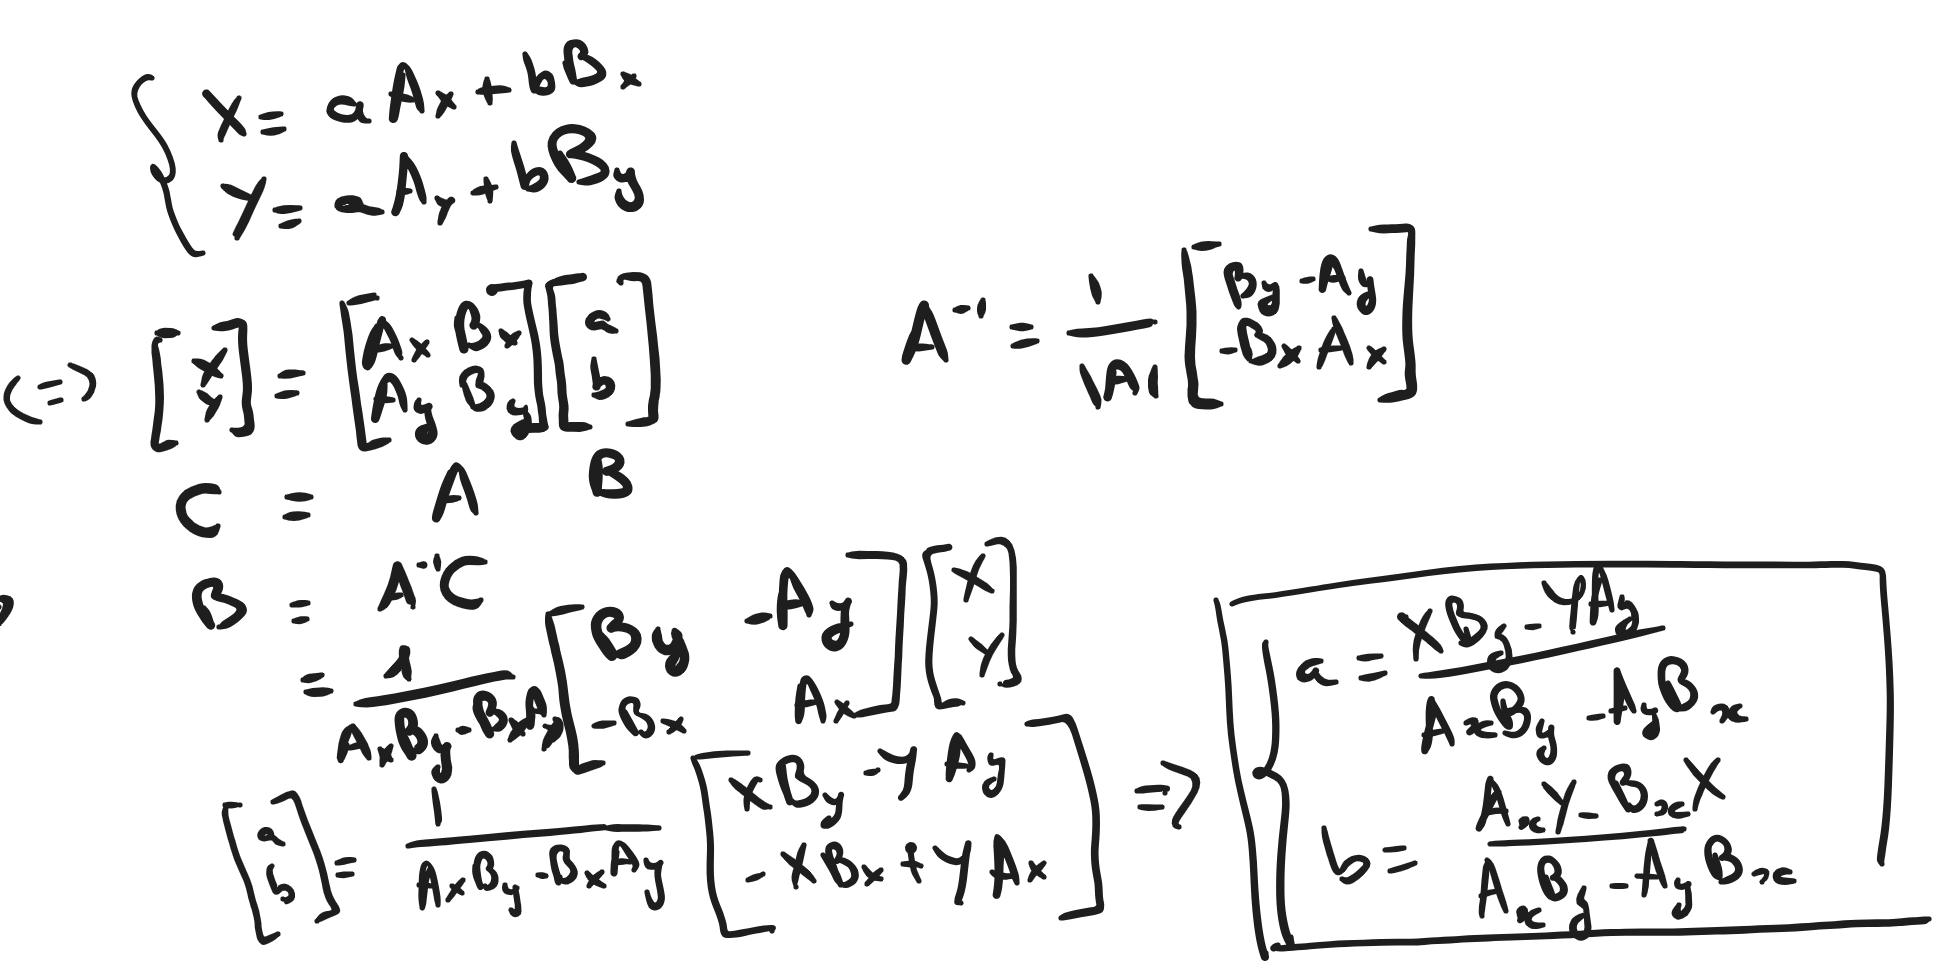 X = a A_x + b B_x
Y = a A_y + b B_y
(=>) [X Y] = [A_x B_x A_y B_y] [a b]
C = A B
A^-1 = 1/|A| [B_y -A_y -B_x A_x]
B = A^-1 C
= 1/(A_x B_y - B_x A_y) [B_y -A_y -B_x A_x] [X Y]
[a b] = 1/(A_x B_y - B_x A_y) [X B_y - Y A_y - X B_x + Y A_x] =>
a = (X B_y - Y A_y)/(A_x B_y - A_y B_x)
b = (A_x Y - B_x X)/(A_x B_y - A_y B_x)